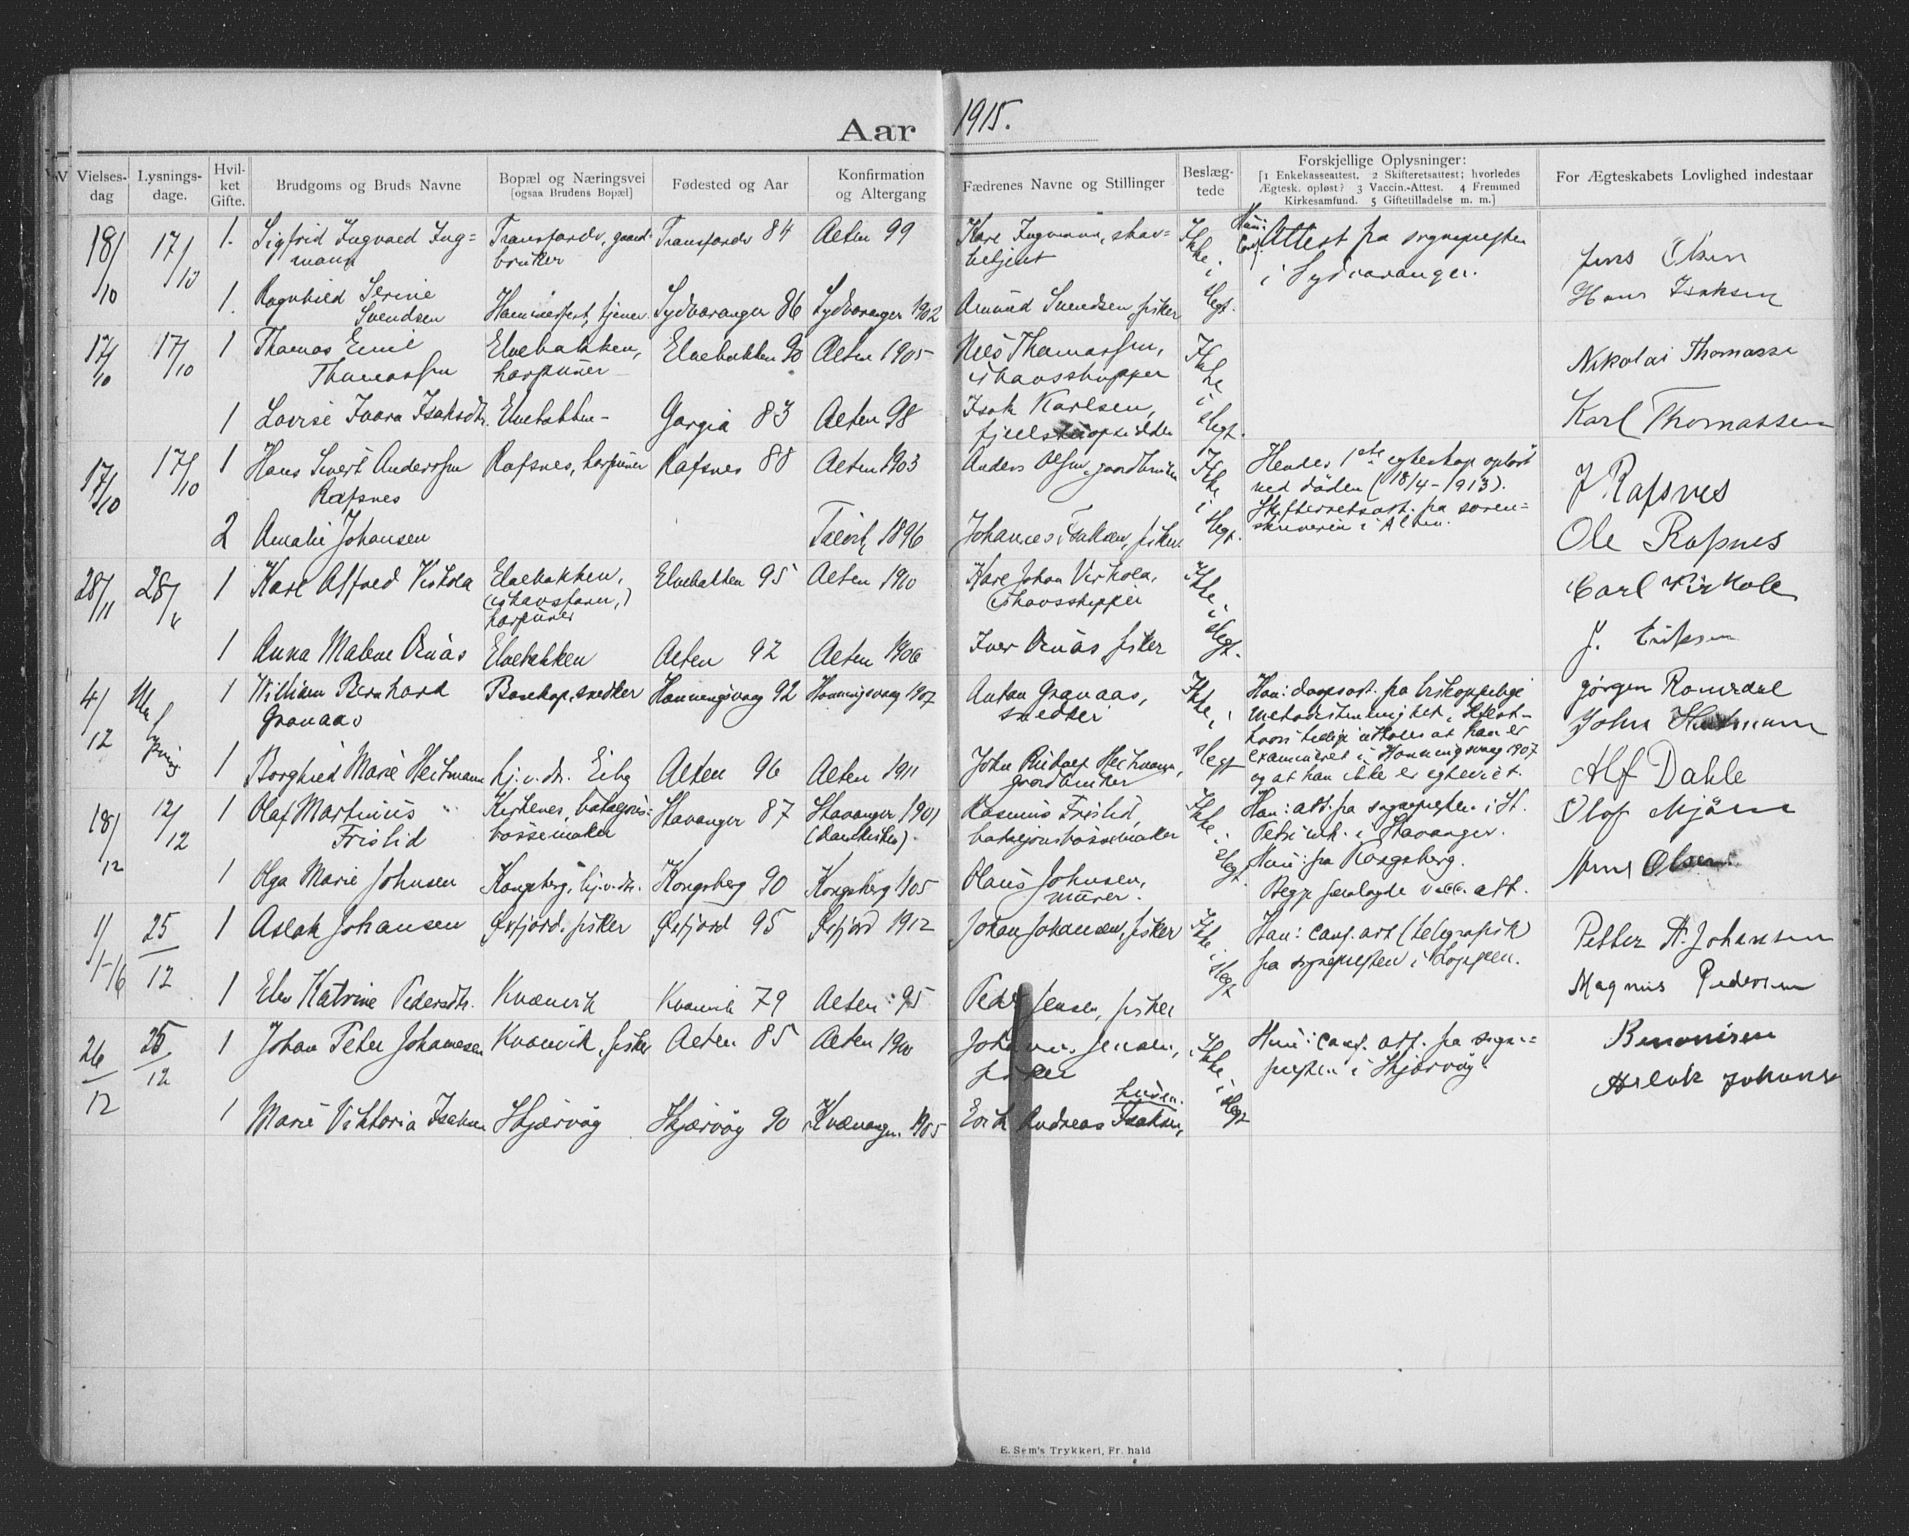 Aar 1915.
Vielses-dag Lysnings-dage. Hvilket Gifte. Brudgoms og Bruds Navne Bopæl og Næringsvei [ogsaa Brudens Bopæl] Fødested og Aar Konfirmation og Altergang Fædrenes Navne og Stillinger Beslægtede Forskjellige Oplysninger: [1 Enkekasseattest. 2 Skifteretsattest; hvorledes Ægtesk. opløst? 3 Vaccin.-Attest. 4 Fremmed Kirkesamfund. 5 Giftetilladelse m. m.] For Ægteskabets Lovlighed indestaar
18/10 17/10 1. Sigfrid Ingvald Ing= Transfarelv, gaard- Transfarelv 84 Alten 99 Karl Ingmann, skov= Ikke Attest fra sognepresten
mann bruker betjent i i Sydvaranger. Jens Olsen
1. Ragnhild Serine Hammerfest, tjener Sydvaranger 86 Sydvaranger 1902 Amund Svendsen, fisker Slegt. Hans Isaksen
Svendsen
17/10 17/10 1 Thomas Emil Elvebakken, Elvebakken 90 Alten 1905 Nils Thomassen, Ikke Nikolai Thomasse
Thomassen harpuner ishavsskipper i
1 Lovise Ivara Isaksdtr. Elvebakken Gargia 83 Alten 98 Isak Karlsen, Slegt. Karl Thomassen
17/10 17/10 1 Hans Sivert Anderssen Rafsnes, harpuner Rafsnes 88 Alten 1903 Anders Olsen, gaardbruker Ikke Hendes 1ste egteskap opløst
Rafsnes i ved døden (18/4-1913). J Rafsnes
2 Amalie Johansen Talvik, 1896 Johannes Isaksen, fisker Slegt. Skifteretsatt. fra soren=
skriveren i Alten. Ole Rafsnes
28/11 28/11 1 Karl Alfred Virkola Elvebakken, Elvebakken 95 Alten 1910 Karl Johan Virkola, Ikke Carl Virkole
(ishavsfarer,) ishavsskipper i
harpuner
1 Anna Malene Ornæs Elvebakken Alten 92 Alten 1906 Iver Ornæs fisker Slegt. J. Eriksen
4/12 1 William Bernhard Bosekop, snedker Honningsvaag 92 Honningsvaag 1907 Anton Granaas, Ikke Han: daapsatt. fra biskoppelige Jørgen Romedal
Granaas snedker i metodistmenighet i John
examineret i Honningsvaag 1907
1 Borghild Marie Heitmann hj.v.dr. Eiby Alten 96 Alten 1911 John Rudolf Heitmann, Slegt og at han ikke er egteviet. Alf Dahle
gaardbruker
18/12 12/12 1 Olaf Martinius Kirkenes, bataljons= Stavanger 87 Stavanger 1901 Rasmus Frislid, Ikke Han: att. fra sognepresten i St. Olof Mjøen
Frislid bøssemaker bataljonsbøssemaker i Petri mh. i Stavanger.
1 Olga Marie Johnsen Kongsberg, hj.v.dr. Kongsberg 90 Kongsberg 1905 Olaus Johnsen, Slegt Hun: fra Kongsberg.
murer. Begge fremlagde vacc. att.
1/1-16 25/12 1 Aslak Johansen Øxfjord, fisker Øxfjord 95 Øxfjord 1912 Johan Johansen, fisker Ikke Han: conf. att (telegrafisk) Petter A. Johansen
i fra sognepresten i Loppen.
1 Elen Katrine Pedersdtr. Kvænvik Kvænvik 79 Alten 95 Peder Jensen, fisker Slegt Magnus Pedersen
26/12 25/12 1 Johan Peter Johannesen Kvænvik, fisker Alten 85 Alten 1900 Johannes Jensen, Ikke Hun: conf. att. fra sogne=
fisker i presten i Skjærvøy Aslak Johans
1 Marie Viktoria Isaksen Skjærvøy Skjærvøy 90 Kvænangen 1905 Erik Andreas Isaksen, Slegt
E. Sem's Trykkeri, Fr. hald